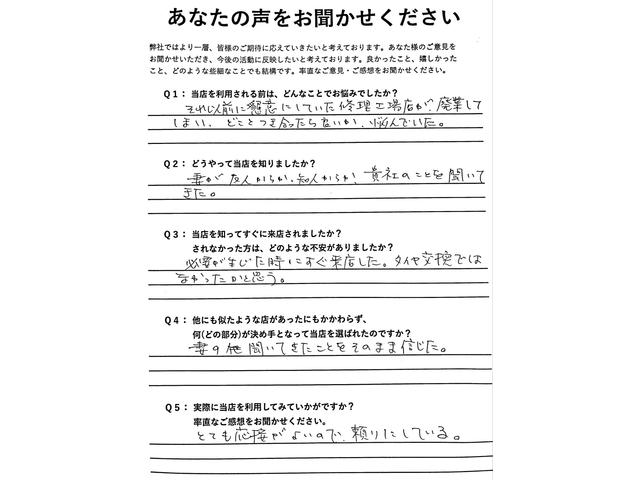 あなたの声をお聞かせください
弊社ではより一層、皆様のご期待に応えていきたいと考えております。あなた様のご意見を
お聞かせいただき、今後の活動に反映したいと考えております。良かったこと、嬉しかった
こと、どのような些細なことでも結構です。率直なご意見・ご感想をお聞かせください。
Q1： 当店を利用される前は、どんなことでお悩みでしたか？
それ以前に懇意にしていた修理工場店が、廃業して
しまい、どことつき合ったらないか、悩んでいた。
Q2： どうやって当店を知りましたか？
妻が友人からか、知人からか、貴社のことを聞いて
きた。
Q3： 当店を知ってすぐに来店されましたか？
されなかった方は、どのような不安がありましたか？
必要が生じた時にすぐ来店した。タイヤ交換では
なかったかと思う。
Q4： 他にも似たような店があったにもかかわらず、
何(どの部分)が決め手となって当店を選ばれたのですか？
妻の 聞いてきたことをそのまま信じた。
Q5： 実際に当店を利用してみていかがですか？
率直なご感想をお聞かせください。
とても応接がよいので、頼りにしている。